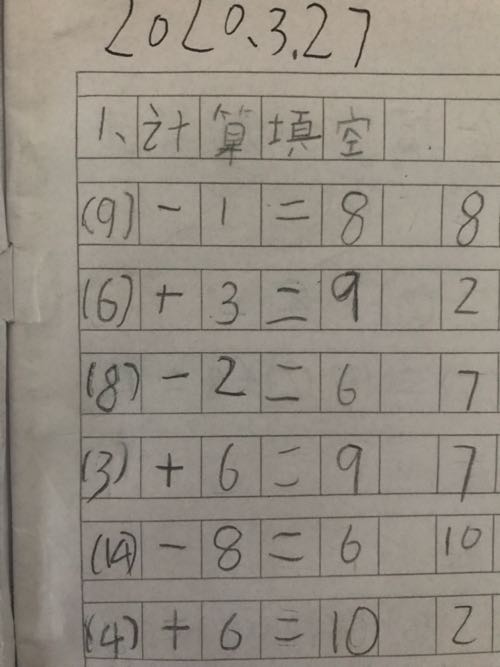 2020.3.27
1、计算填空
(9)-1=8 8
(6)+3=9 2
(8)-2=6 7
(3)+6=9 7
(14)-8=6 10
(4)+6=10 2